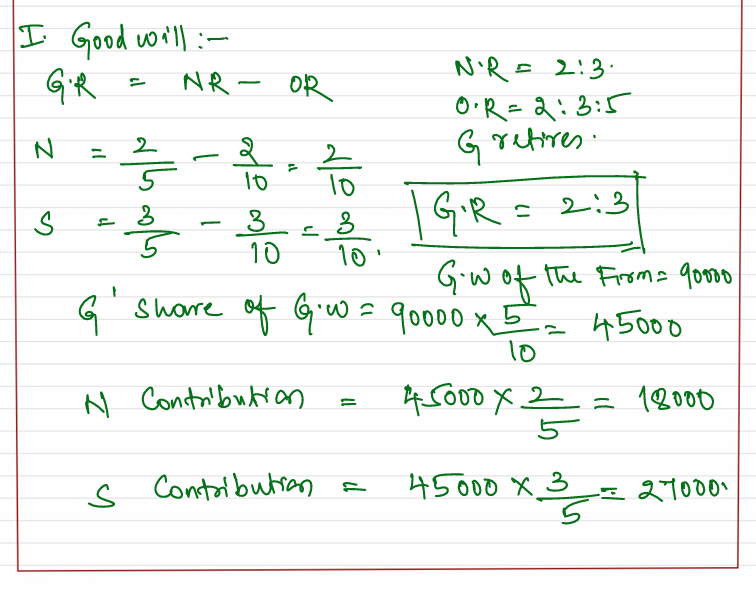 I. Good will :-
G.R = NR - OR
N.R = 2:3.
O.R = 2:3:5
G retires.
N = 2/5 - 2/10 = 2/10
S = 3/5 - 3/10 = 3/10.
G.R = 2:3
G.W of the Firm = 90000
G' share of G.W = 90000 x 5/10 = 45000
N Contribution = 45000 x 2/5 = 18000
S Contribution = 45000 x 3/5 = 27000.